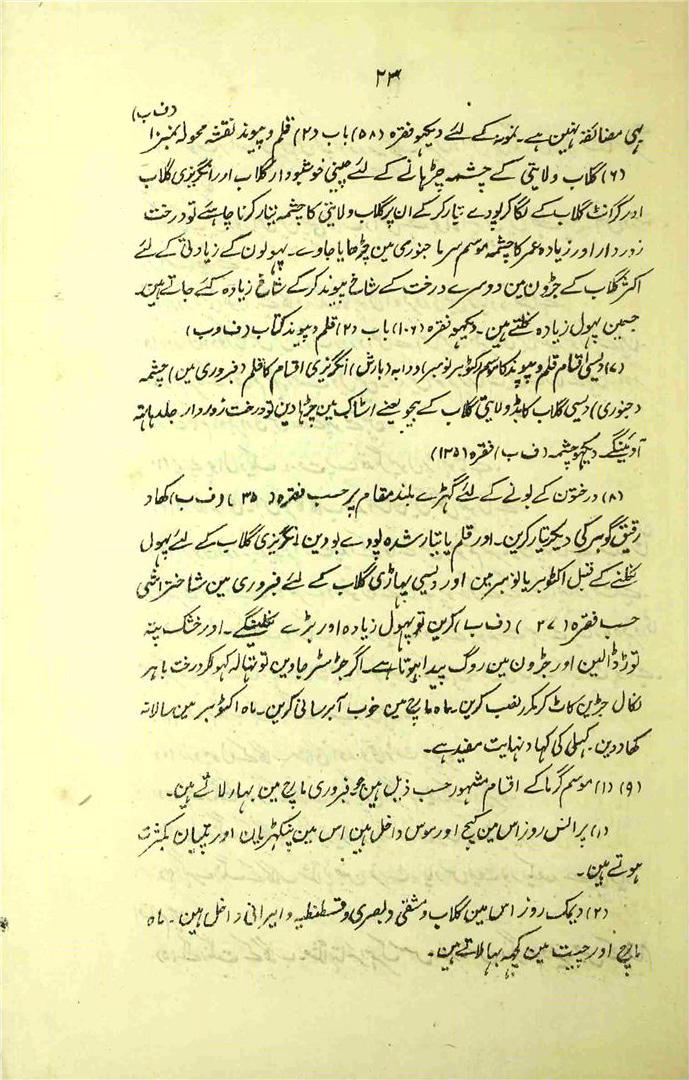 ۲۳
(ف ب)
بہی مضائقہ نہین ہے۔ نمونہ کے لئے دیکھو فقرہ (۵۸) باب (۲) قلم و پیوند نقشہ محولہ نمبر ۱۰
(۶) گلاب ولایتی کے چشمہ چڑہانے کے لئے چینی خوشبودار گلاب اور انگریزی گلاب
اور گرانٹ گلاب کے لگا کر پودے تیار کر کے ان پر گلاب ولایتی کا چشمہ تیار کرنا چاہئے تو درخت
زوردار اور زیادہ عمر کا چشمہ موسم سرما جنوری مین چڑھایا جاوے۔ پہولون کے زیادتی کے لئے
اکثر گلاب کے جڑون مین دوسرے درخت کے شاخ پیوند کر کے شاخ زیادہ کئے جاتے ہین۔
جسمین پہول زیادہ نکلتے ہین۔ دیکھو فقرہ (۱۰۶) باب (۲) قلم و پیوند کتاب (ف و ب)
(۷) دیسی اقسام قلم و پیوند کا موسم اکٹوبر نومبر ادرابہ (بارش) انگریزی اقسام کا قلم (فبروری مین) چشمہ
(جنوری) دیسی گلاب کا بڈ ولایتی گلاب کے بیجو یعنے اسٹاک مین چڑہا دین تو درخت زوردار۔ جلد ہاتہ
آوینگے۔ دیکھو چشمہ (ف ب) فقرہ (۱۳۵)
(۸) درختون کے بونے کے لئے گہڑے بلند مقام پر حسب فقرہ (۳۵) (ف ب) کھاد
رقیق گوبر کی دیکر تیار کرین۔ اور قلم یا تیار شدہ پودے بودین انگریزی گلاب کے لئے پہول
نکلنے کے قبل اکٹوبر یا نومبر مین اور دیسی پہاڑی گلاب کے لئے فبروری مین شاختراشی
حسب فقرہ (۲۷) (ف ب) کرین تو پہول زیادہ اور بڑے نکلینگے۔ اور خشک پتہ
توڑ ڈالین اور جڑون مین روگ پیدا ہوتا ہے۔ اگر جڑ سٹر جاوین تو تہالہ کہولکر درخت باہر
نکال جڑین کاٹ کر مکرر نصب کرین۔ ماہ مارچ مین خوب آبرسانی کرین۔ ماہ اکٹوبر مین سالانہ
کھاد دین۔ کہلی کی کہاد نہایت مفید ہے۔
(۹) (۱) موسم گرما کے اقسام مشہور حسب ذیل ہین جو فبروری مارچ مین بہار لاتے ہین۔
(۱) پرانس روز اس مین کیج اور سوس داخل ہین اس مین پنکہڑیان اور پتیان بکثرت
ہوتے ہین۔
(۲) دیمک روز اس مین گلاب دمشقی و بصری و قسطنطیہ و ایرانی داخل ہین۔ ماہ
مارچ اور چیت مین کچہہ بہار لاتے ہین۔